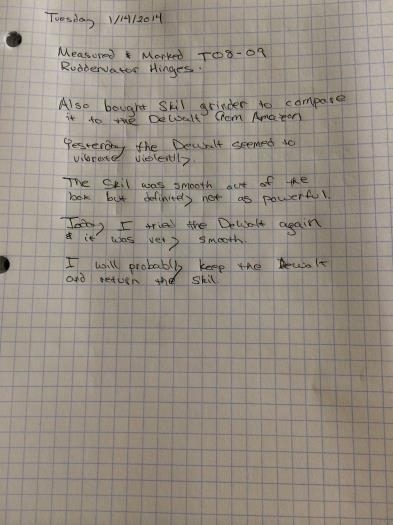 Tuesday 1/14/2014
Measured & Marked T08-09
Ruddervator Hinges.
Also bought Skil grinder to compare
it to the DeWalt from Amazon
Yesterday the DeWalt seemed to
vibrate violently.
The Skil was smooth out of the
box but definitely not as powerful.
Today I tried the DeWalt again
& it was very smooth.
I will probably keep the Dewalt
and return the Skil